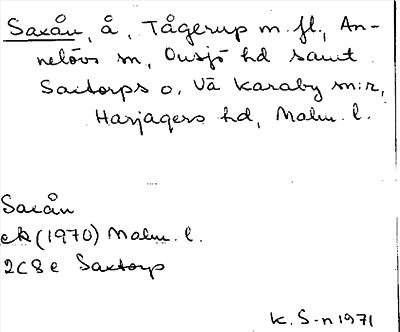 Saxån, å, Tågerup m. fl., An-
nelövs sn, Onsjö hd samt
Saxtorps o, Vä Karaby sn:r,
Harjagers hd, Malm. l.
Saxån
ek (1970) Malm. l.
2C8e Saxtorp
K. S-n 1971